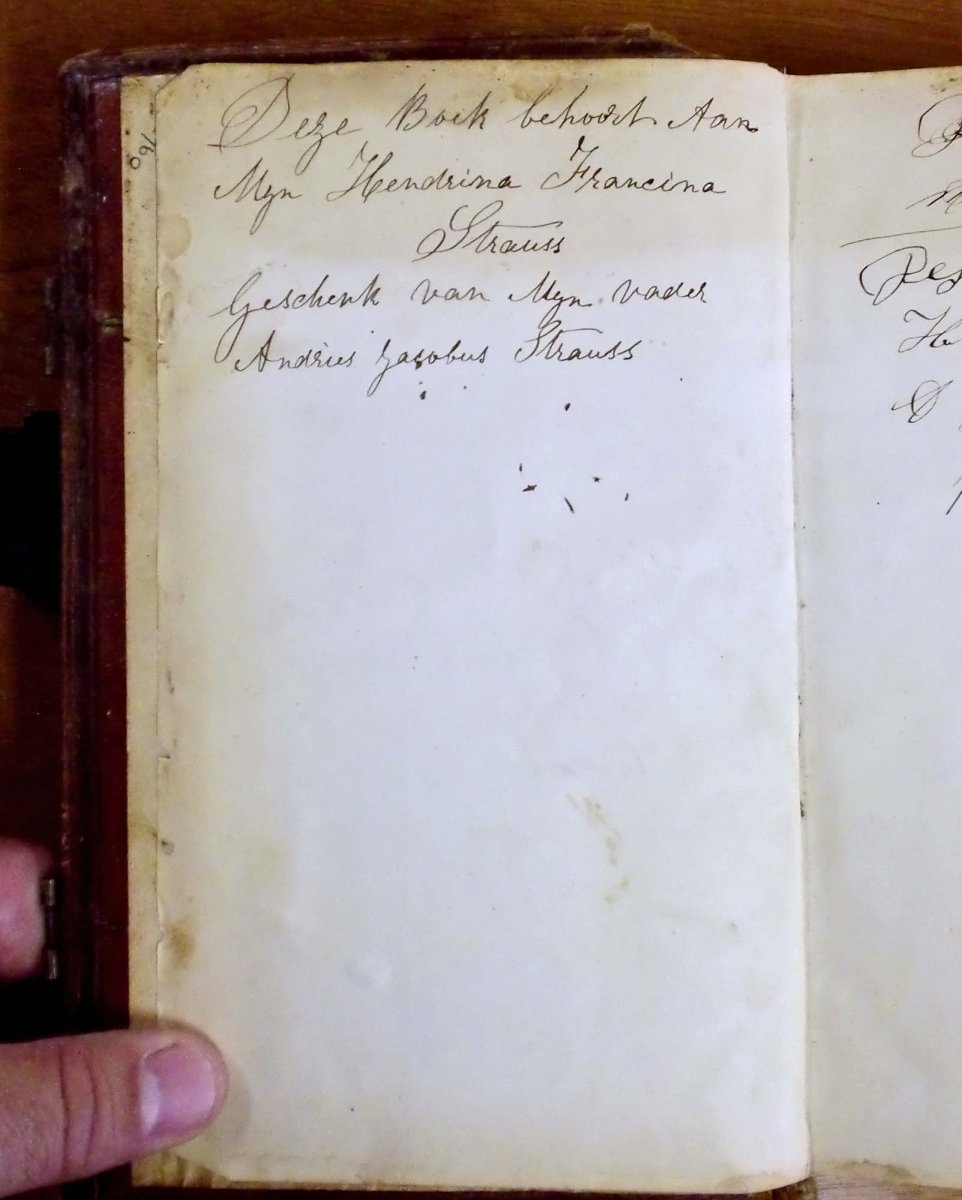 Deze Boek behoort Aan
Myn Hendrina Francina
Strauss
Geschenk van Myn vader
Andries Jacobus Strauss
760
Des